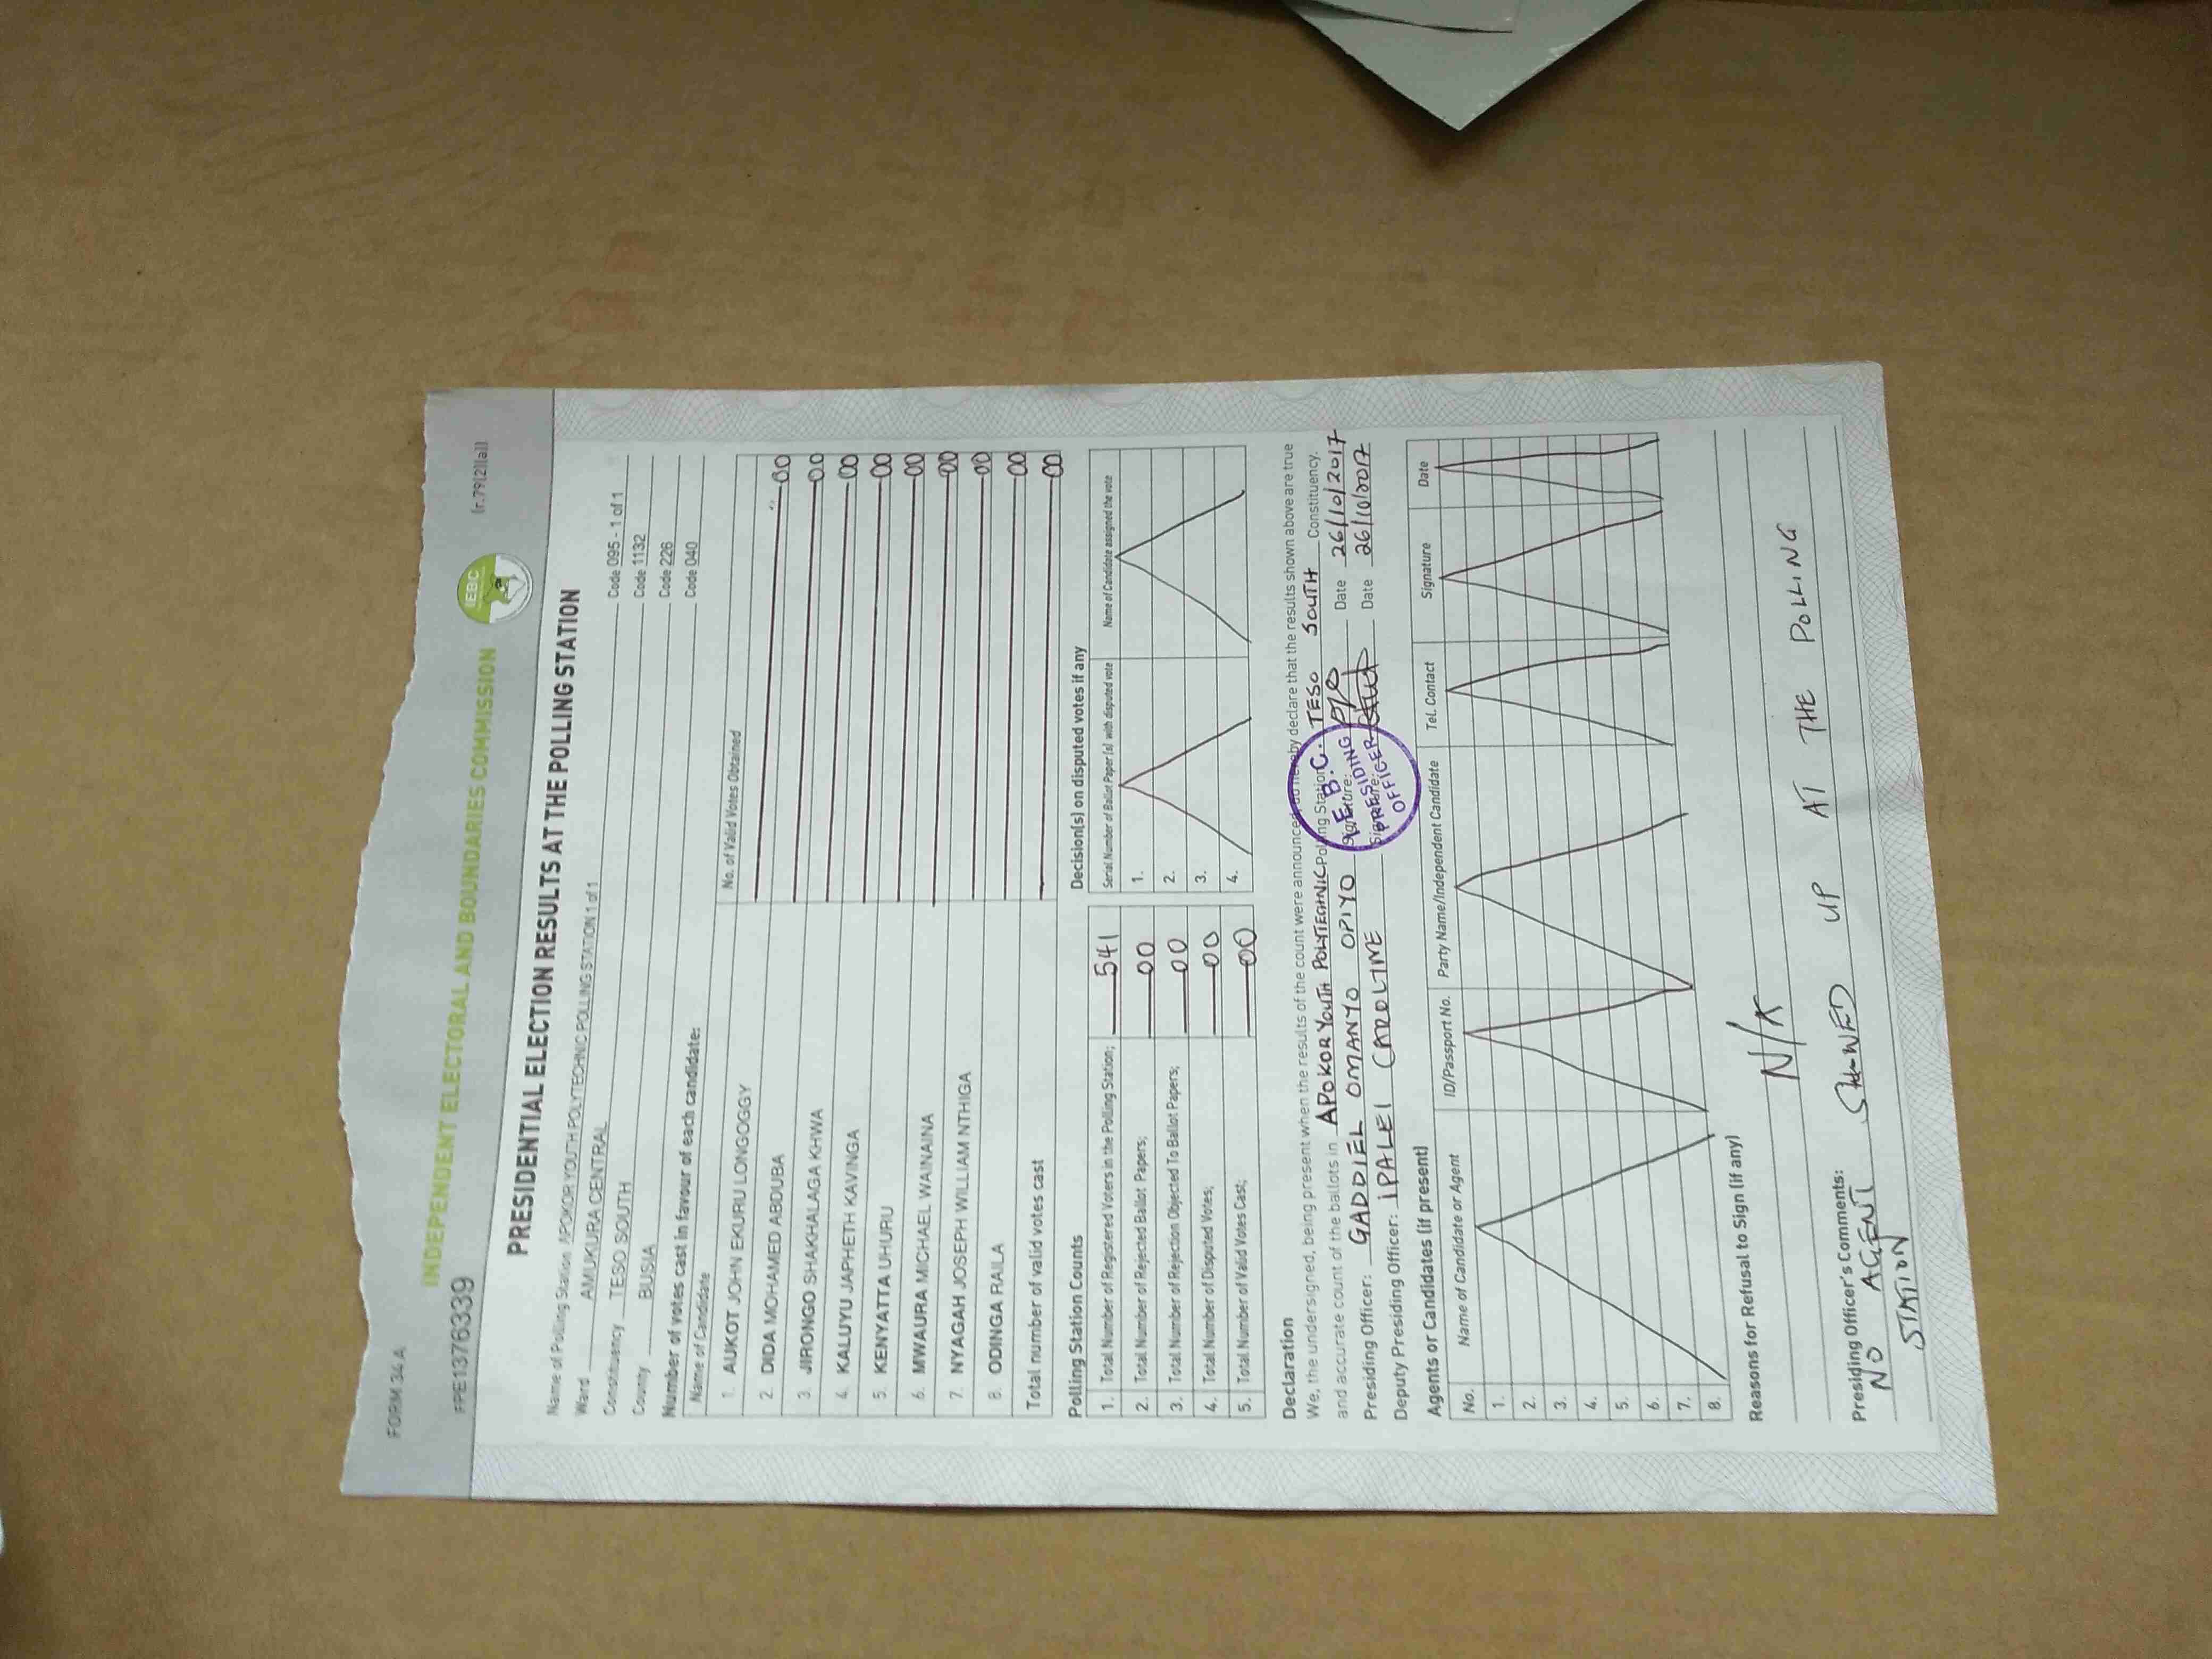 FORM 34 A
(r.79(2)(a))
INDEPENDENT ELECTORAL AND BOUNDARIES COMMISSION
IEBC
FPE1376339
PRESIDENTIAL ELECTION RESULTS AT THE POLLING STATION
Name of Polling Station APOKOR YOUTH POLYTECHNIC POLLING STATION 1 of 1 Code 095 - 1 of 1
Ward AMUKURA CENTRAL Code 1132
Constituency TESO SOUTH Code 226
County BUSIA Code 040
Number of votes cast in favour of each candidate:
Name of Candidate No. of Valid Votes Obtained
1. AUKOT JOHN EKURU LONGOGGY 00
2. DIDA MOHAMED ABDUBA 00
3. JIRONGO SHAKHALAGA KHWA 00
4. KALUYU JAPHETH KAVINGA 00
5. KENYATTA UHURU 00
6. MWAURA MICHAEL WAINAINA 00
7. NYAGAH JOSEPH WILLIAM NTHIGA 00
8. ODINGA RAILA 00
Total number of valid votes cast 00
Polling Station Counts
1. Total Number of Registered Voters in the Polling Station; 541
2. Total Number of Rejected Ballot Papers; 00
3. Total Number of Rejection Objected To Ballot Papers; 00
4. Total Number of Disputed Votes; 00
5. Total Number of Valid Votes Cast; 00
Decision(s) on disputed votes if any
Serial Number of Ballot Paper (s) with disputed vote Name of Candidate assigned the vote
1.
2.
3.
4.
Declaration
We, the undersigned, being present when the results of the count were announced, do hereby declare that the results shown above are true
and accurate count of the ballots in APOKOR YOUTH POLYTECHNIC Polling Station, TESO SOUTH Constituency.
Presiding Officer: GADDIEL OMANYO OPIYO Signature: Date 26/10/2017
Deputy Presiding Officer: IPALEI CAROLINE Signature: Date 26/10/2017
I.E.B.C.
PRESIDING
OFFICER
Agents or Candidates (if present)
No. Name of Candidate or Agent ID/Passport No. Party Name/Independent Candidate Tel. Contact Signature Date
1.
2.
3.
4.
5.
6.
7.
8.
Reasons for Refusal to Sign (if any)
Presiding Officer's Comments:
NO AGENT SHOWED UP AT THE POLLING
STATION